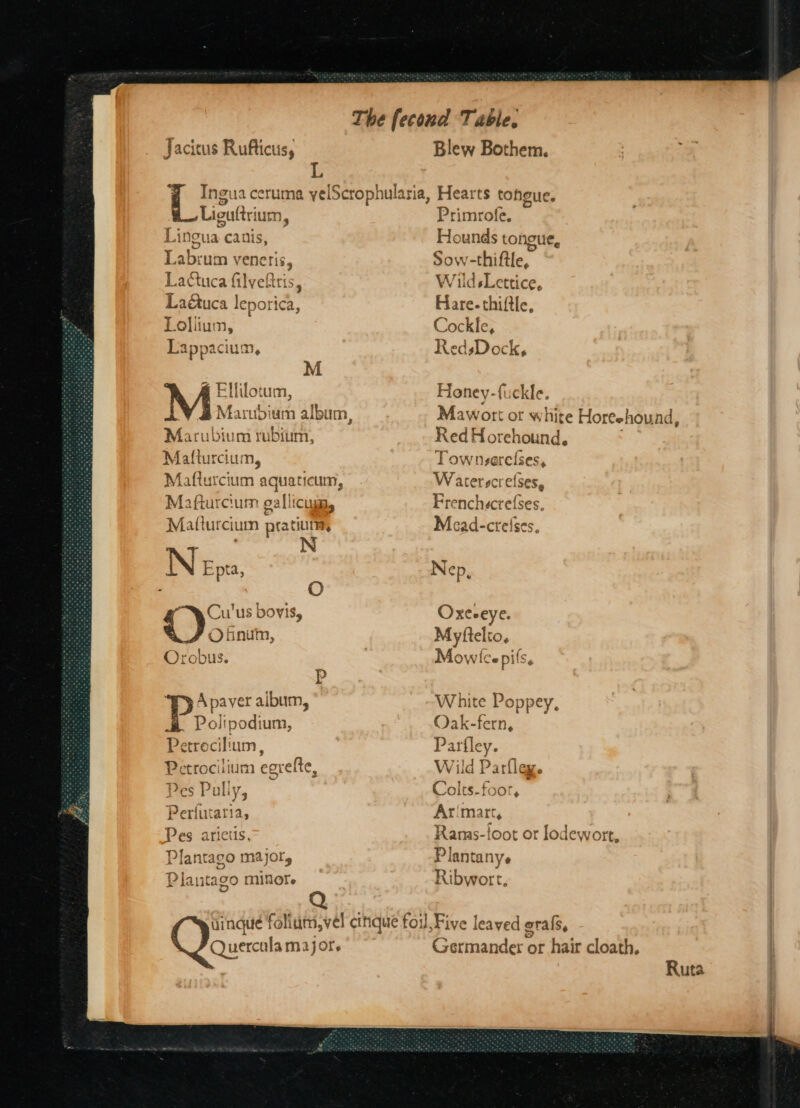 The ſecond Table.
Jacitus Ruſticus, Blew Bothem.
L
LIngua ceruma velScrophularia, Hearts tongue.
Liguſtrium, Primroſe.
Lingua canis, Hounds tongue,
Labrum veneris, Sow-thiſtle,
Lactuca ſilveſtris, Wild-Lettice,
Lactuca leporica, Hare-thiſtle,
Lolium, Cockle,
Lappacium, Red-Dock,
M
MEllilotum, Honey-ſuckle.
Marubium album, Mawort or white Hore-hound,
Marubium rubium, Red Horehound.
Maſturcium, Town-creſses,
Maſturcium aquaticum, Water-creſses,
Maſturcium gallicum, French-creſses.
Maſturcium pratium, Mead-creſses.
N
NEpta, Nep.
O
OCulus bovis, Oxe-eye.
Oſinum, Myſtelto,
Orobus. Mowſe-piſs,
P
PApaver album, White Poppey,
Polipodium, Oak-fern,
Petrocilium, Parſley.
Petrocilium egreſte, Wild Parſley.
Pes Pully, Colts-foot,
Perſutaria, Arſmart,
Pes arietis, Rams-foot or lodewort,
Plantago major, Plantany.
Plantago minor. Ribwort.
Q
Quinque folium, vel cinque foil, Five leaved graſs,
Quercula major. Germander or hair cloath.
Ruta